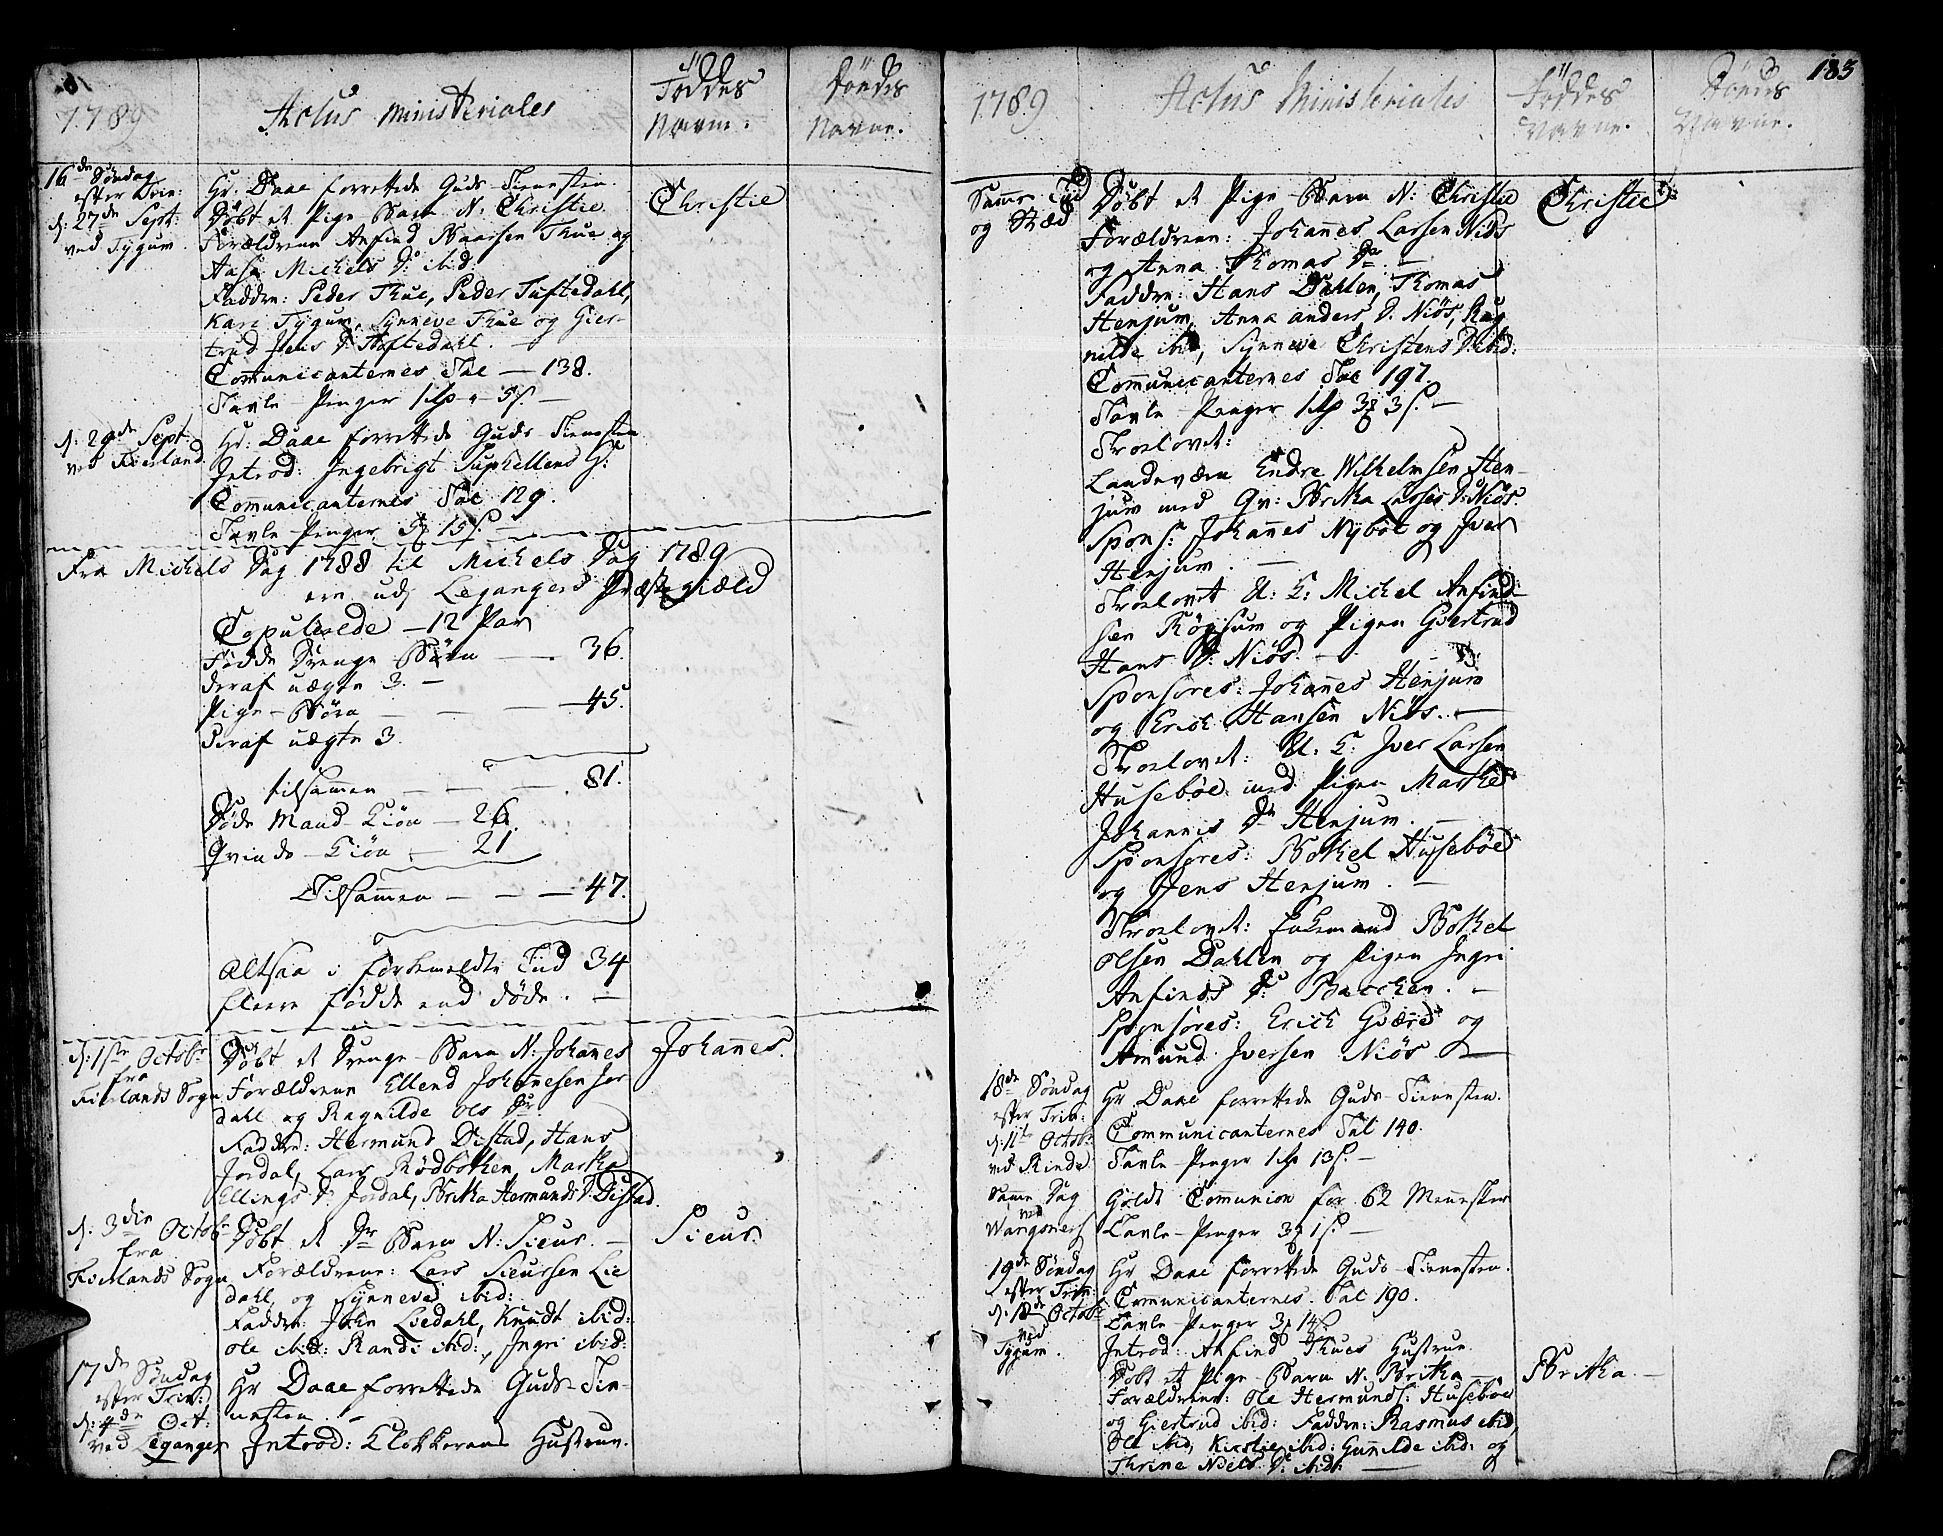 1789
Actus ministeriales
Föddes
Navne.
Dördes
Navne.
16de Söndag
efter Trin:
d: 27de Sept:
ved Tygum
Hr. Daae forrettede Guds-Tienesten.
Döbt et Pige Barn N: Christie
Christie
Forældrene Anfind Baarsen Thue og
Aase Michels D: ibid:
Faddre: Peder Thue, Peder Tuftedahl,
Kari Tygum, Synneve Thue og Gier-
trud Jens D: Tuftedahl.
Communicanternes Tal — 138.
Tavle-Penger 1 - 5 s. —
d: 29de Sept:
ved Fierland
Hr: Daae forrettede Guds-Tienesten
Introd: Ingebrigt Suphellens H:
Communicanternes Tal 129.
Tavle-Penger 15 s.
Fra Michels Dag 1788 til Michels Dag 1789
ere udj Legangers Præstegield
Copulerede — 12 Par
Födde Drenge Börn — 36.
deraf uægte 3. —
Pige-Börn — — 45.
Deraf uægte 3.
tilsamen — — 81.
Döde Mand-Kiön — 26.
Qvinde-Kiön — 21
Tilsamen — — 47.
Altsaa i forbemeldte Tiid 34
fleere födde end döde. —
d: 1ste Octobr
fra
Fierlands Sogn
Döbt et Drenge-Barn N: Johannes
Johannes.
Forældrene Ellend Johannesen Jor
dahl og Ragnilde Ols Dr
Faddre: Hermund Distad, Hans
Jordal, Lars Rödbotten, Martha
Ellings D: Jordal, Britha Hermunds D: Distad.
d. 3die Octob
fra
Fierlands Sogn
Döbt et Dr Barn N: Sieur. —
Sieur.
Forældrene: Lars Sieursen Lie
dahl og Synneved ibid:
Faddre: John Liedahl, Knudt ibid:
Ole ibid: Randi ibid:, Ingri ibid:
17de Söndag
efter Trin:
d: 4de Oct:
ved Leganger
Hr Daae forrettede Guds-Tie-
nesten. —
Introd: Klokkerens Hustrue.
183
1789
Actus Ministeriales
Föddes
Navne.
Dördes
Navne.
Samme Tiid
og Stæd
Döbt et Pige-Barn N: Christie
Christie
Forældrene: Johannes Larsen Niös
og Anna Thomas Dr —
Faddre: Hans Dahlen, Thomas
Henjum, Anna Anders D. Niös, Rag
nilde ibid, Synneve Christens D. ibid:
Communicanternes Tal 197.
Tavle-Penger 1 3 3 s. —
Troelovet:
Landeværn Endre Wilhelmsen Hen-
jum med Qv: Britha Larses D: Niös.
Spons: Johannes Nyböe og Iver
Henjum. —
Troelovet U: K: Michel Anfind-
sen Röysum og Pigen Giertrud
Hans D: Niös. —
Sponsores: Johannes Henjum
og Erick Hansen Niös. —
Troelovet: U: K: Iver Larsen
Huseböe med Pigen Marthe
Johannis Dr Henjum. —
Sponsores: Bottel Huseböe
og Jens Henjum. —
Troelovet: Enkemand Bothel
Olsen Dahlen og Pigen Ingri
Anfinds D: Bacchen. —
Sponsores: Erick Gvære og
Amund Iversen Niös —
18de Söndag
efter Trin:
d: 11te Octobr
ved Rinde
Hr Daae forrettede Guds-Tienesten.
Communicanternes Tal 140.
Tavle-Penger 1 13 s. —
Samme Dag
ved
Wangsnes
Holdt Communion for 62 Menesker
Tavle-Penger 3 1 s. —
19de Söndag
efter Trin:
d: 18de Octobr
ved
Tygum.
Hr Daae forrettede Guds-Tienesten.
Communicanternes Tal 190.
Tavle-Penger 3 14 s.
Introd: Anfind Thues Hustrue.
Döbt et Pige-Barn N. Britha —
Britha. —
Forældrene: Ole Hermunds: Huseböe
og Giertrud ibid: Faddre: Rasmus ibid,
Ole ibid, Kirstie ibid: Gunnilde ibid: og
Thrine Niels D: ibid: —